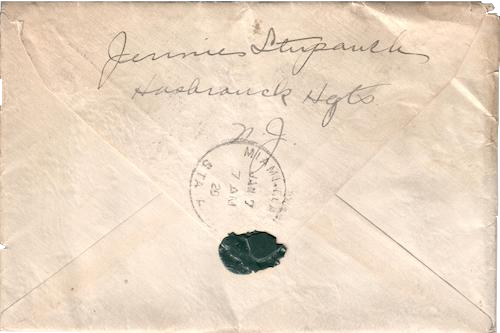 Jennies Stupanek
Hasbrouck Hgts
N.J.
MIAMI
JAN 7
7 AM
26
STA.